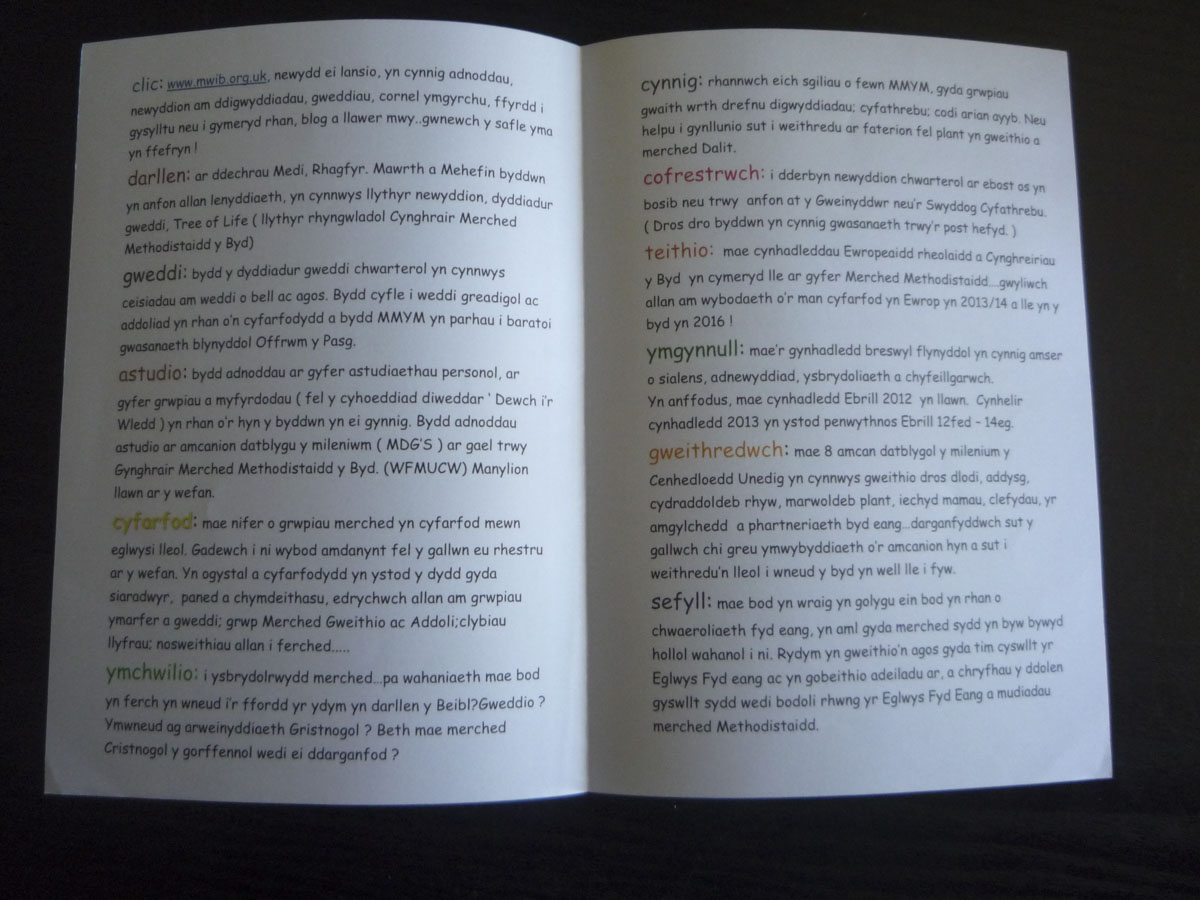 clic: www.mwib.org.uk, newydd ei lansio, yn cynnig adnoddau,
newyddion am ddigwyddiadau, gweddiau, cornel ymgyrchu, ffyrdd i
gysylltu neu i gymeryd rhan, blog a llawer mwy..gwnewch y safle yma
yn ffefryn !
darllen: ar ddechrau Medi, Rhagfyr. Mawrth a Mehefin byddwn
yn anfon allan lenyddiaeth, yn cynnwys llythyr newyddion, dyddiadur
gweddi, Tree of Life ( llythyr rhyngwladol Cynghrair Merched
Methodistaidd y Byd)
gweddi: bydd y dyddiadur gweddi chwarterol yn cynnwys
ceisiadau am weddi o bell ac agos. Bydd cyfle i weddi greadigol ac
addoliad yn rhan o'n cyfarfodydd a bydd MMYM yn parhau i baratoi
gwasanaeth blynyddol Offrwm y Pasg.
astudio: bydd adnoddau ar gyfer astudiaethau personol, ar
gyfer grwpiau a myfyrdodau ( fel y cyhoeddiad diweddar ' Dewch i'r
Wledd ) yn rhan o'r hyn y byddwn yn ei gynnig. Bydd adnoddau
astudio ar amcanion datblygu y mileniwm ( MDG'S ) ar gael trwy
Gynghrair Merched Methodistaidd y Byd. (WFMUCW) Manylion
llawn ar y wefan.
cyfarfod: mae nifer o grwpiau merched yn cyfarfod mewn
eglwysi lleol. Gadewch i ni wybod amdanynt fel y gallwn eu rhestru
ar y wefan. Yn ogystal a cyfarfodydd yn ystod y dydd gyda
siaradwyr, paned a chymdeithasu, edrychwch allan am grwpiau
ymarfer a gweddi; grwp Merched Gweithio ac Addoli;clybiau
llyfrau; nosweithiau allan i ferched.....
ymchwilio: i ysbrydolrwydd merched...pa wahaniaeth mae bod
yn ferch yn wneud i'r ffordd yr ydym yn darllen y Beibl?Gweddio ?
Ymwneud ag arweinyddiaeth Gristnogol ? Beth mae merched
Cristnogol y gorffennol wedi ei ddarganfod ?
cynnig: rhannwch eich sgiliau o fewn MMYM, gyda grwpiau
gwaith wrth drefnu digwyddiadau; cyfathrebu; codi arian ayyb. Neu
helpu i gynllunio sut i weithredu ar faterion fel plant yn gweithio a
merched Dalit.
cofrestrwch: i dderbyn newyddion chwarterol ar ebost os yn
bosib neu trwy anfon at y Gweinyddwr neu'r Swyddog Cyfathrebu.
( Dros dro byddwn yn cynnig gwasanaeth trwy'r post hefyd. )
teithio: mae cynhadleddau Ewropeaidd rheolaidd a Cynghreiriau
y Byd yn cymeryd lle ar gyfer Merched Methodistaidd....gwyliwch
allan am wybodaeth o'r man cyfarfod yn Ewrop yn 2013/14 a lle yn y
byd yn 2016 !
ymgynnull: mae'r gynhadledd breswyl flynyddol yn cynnig amser
o sialens, adnewyddiad, ysbrydoliaeth a chyfeillgarwch.
Yn anffodus, mae cynhadledd Ebrill 2012 yn llawn. Cynhelir
cynhadledd 2013 yn ystod penwythnos Ebrill 12fed - 14eg.
gweithredwch: mae 8 amcan datblygol y milenium y
Cenhedloedd Unedig yn cynnwys gweithio dros dlodi, addysg,
cydraddoldeb rhyw, marwoldeb plant, iechyd mamau, clefydau, yr
amgylchedd a phartneriaeth byd eang...darganfyddwch sut y
gallwch chi greu ymwybyddiaeth o'r amcanion hyn a sut i
weithredu'n lleol i wneud y byd yn well lle i fyw.
sefyll: mae bod yn wraig yn golygu ein bod yn rhan o
chwaeroliaeth fyd eang, yn aml gyda merched sydd yn byw bywyd
hollol wahanol i ni. Rydym yn gweithio'n agos gyda tim cyswllt yr
Eglwys Fyd eang ac yn gobeithio adeiladu ar, a chryfhau y ddolen
gyswllt sydd wedi bodoli rhwng yr Eglwys Fyd Eang a mudiadau
merched Methodistaidd.